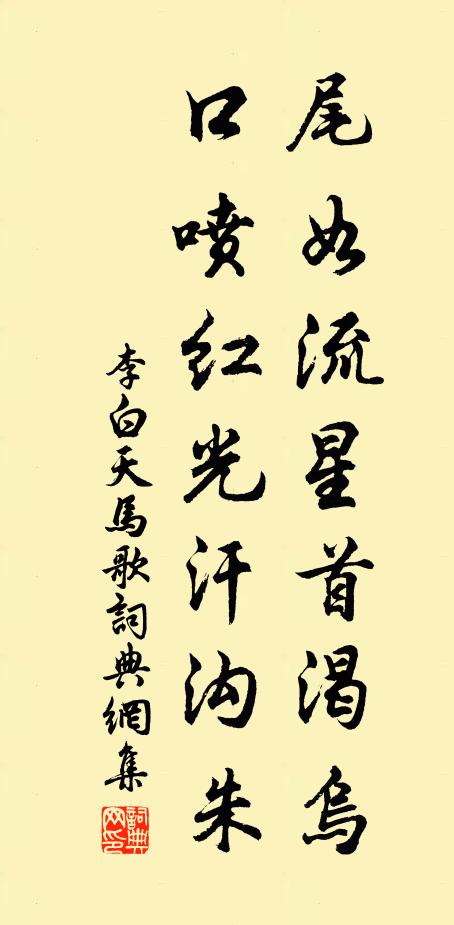 尾如流星首渴烏
口噴红光汗沟朱
李白天馬歌詞典網集
詞典網印